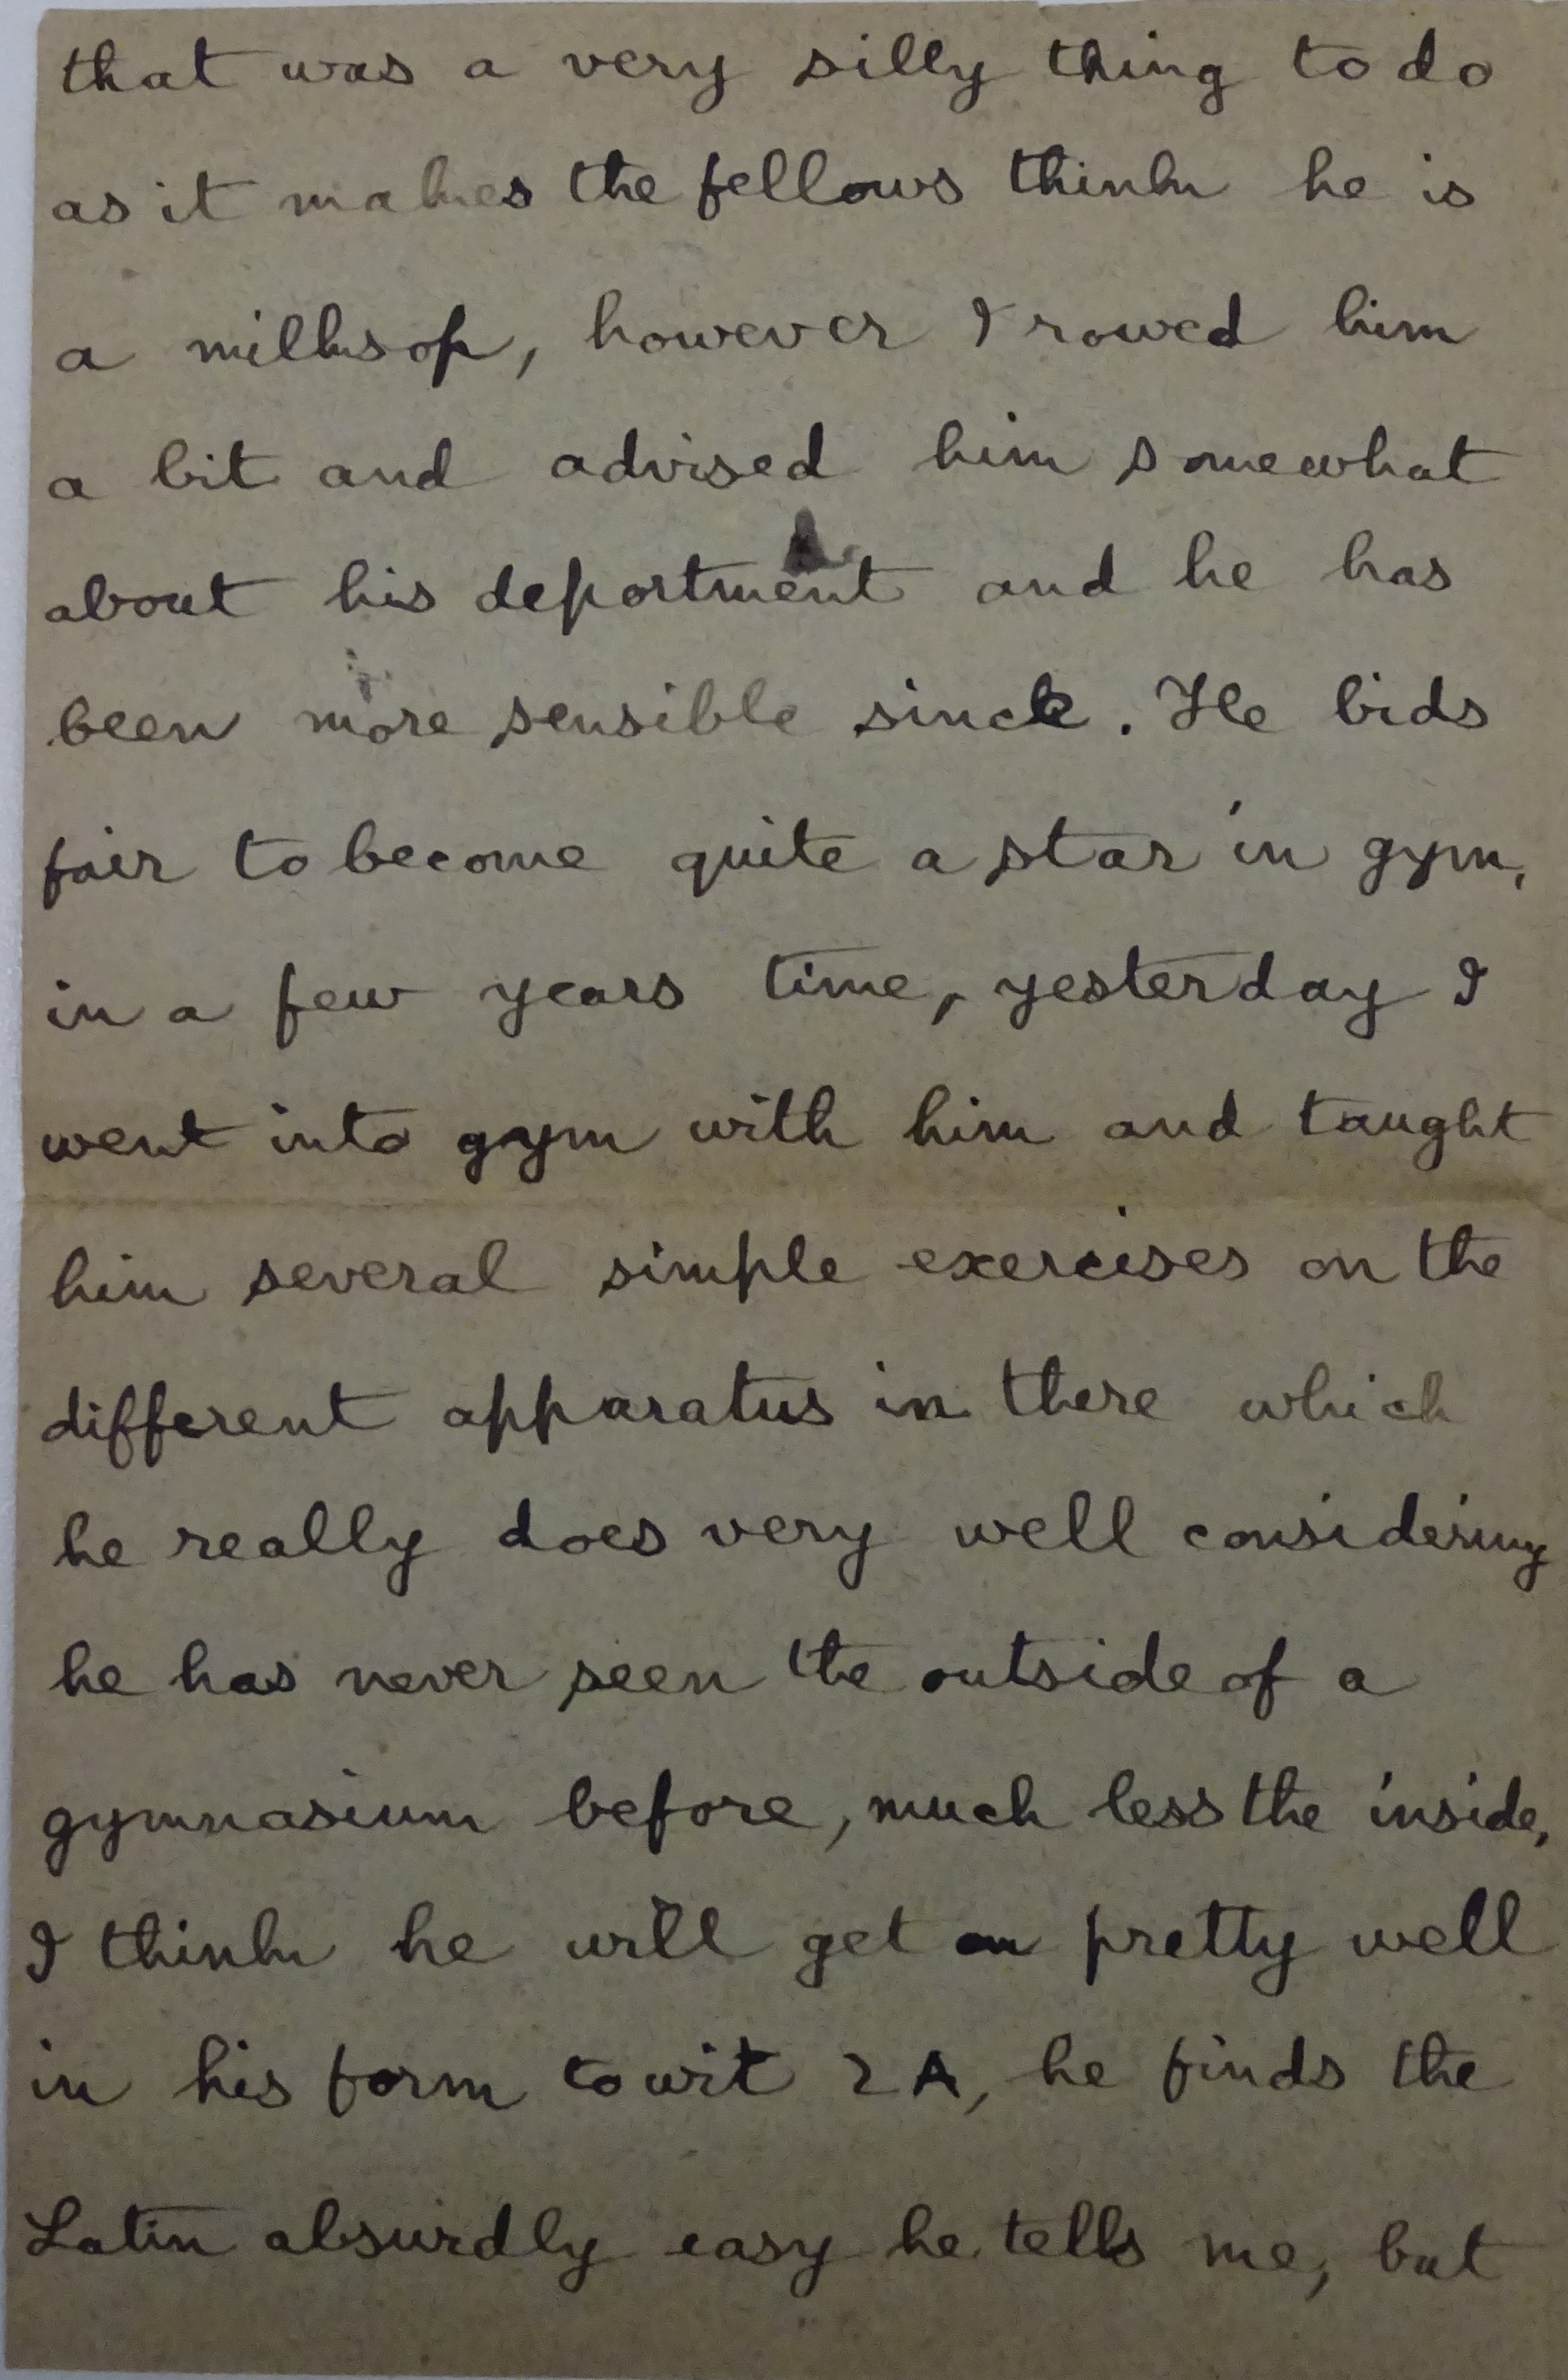 that was a very silly thing to do
as it makes the fellows think he is
a milksop, however I rowed him
a bit and advised him somewhat
about his deportment and he has
been more sensible since. He bids
fair to become quite a star in gym,
in a few years time, yesterday I
went into gym with him and taught
him several simple exercises on the
different apparatus in there which
he really does very well considering
he has never seen the outside of a
gymnasium before, much less the inside,
I think he will get on pretty well
in his form to wit 2A, he finds the
Latin absurdly easy he tells me, but